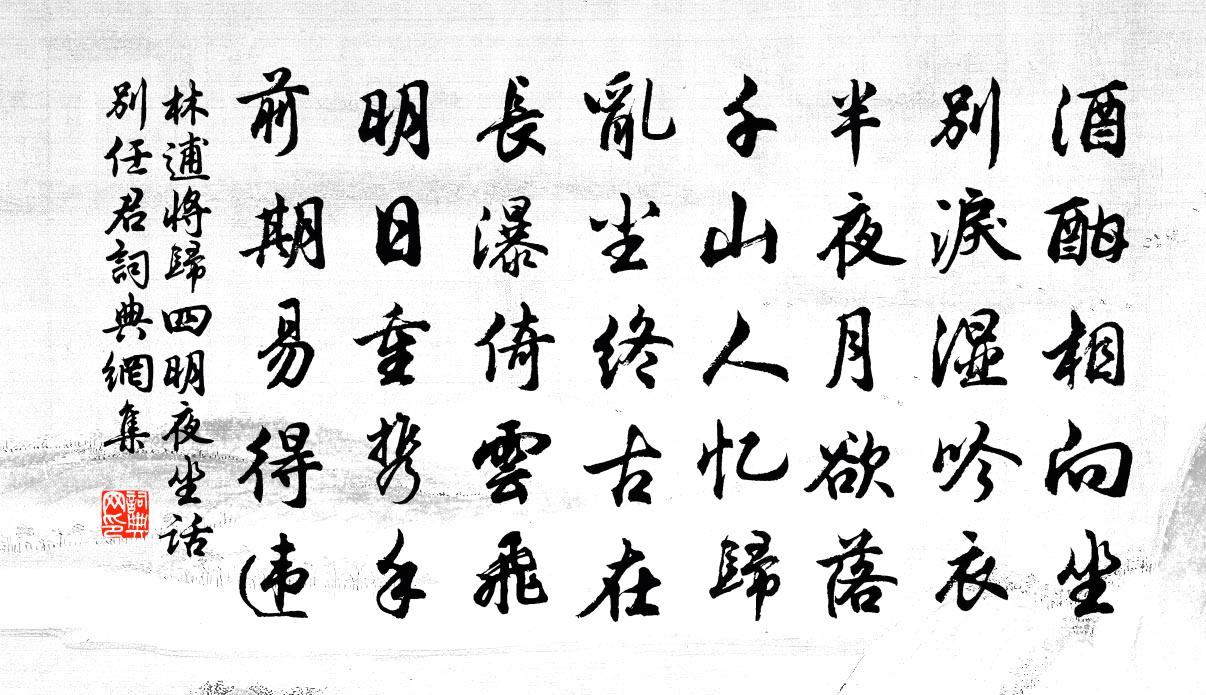 酒酣相向坐
別淚濕吟衣
半夜月欲落
千山人忆歸
亂尘终古在
長瀑倚雲飛
明日重携手
前期易得违
林逋將歸四明夜坐話
別任君詞典網集
詞典
网印